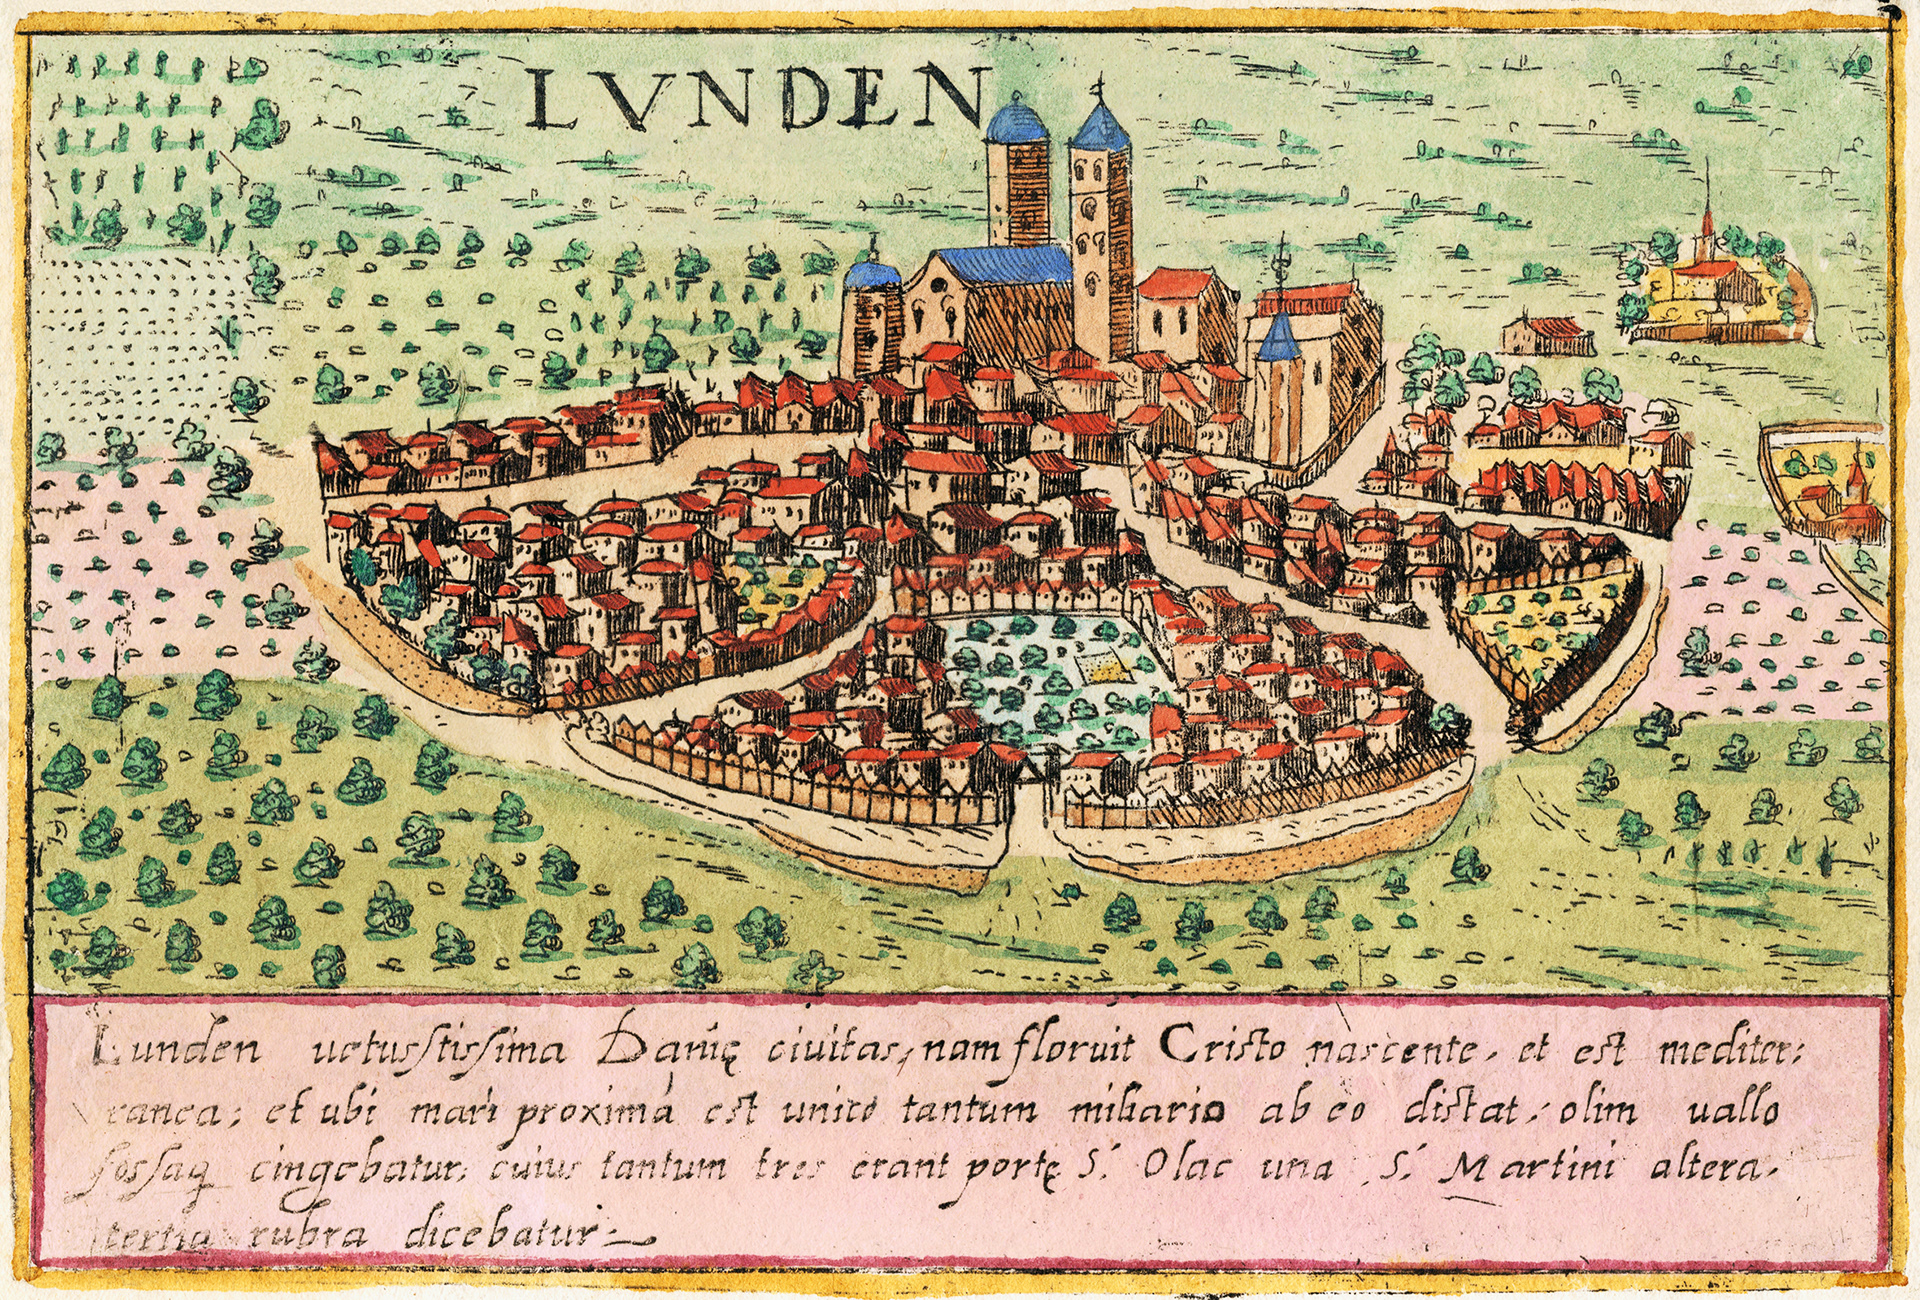 LVNDEN
Lunden uetusstissima Danię ciuitas, nam floruit Cristo nascente, et est mediter:
ranea; et ubi mari proxima est unico tantum miliario ab eo distat; olim uallo
fossaq cingebatur; cuius tantum tres erant portę S. Olac una S. Martini altera,
tertia rubra dicebatur